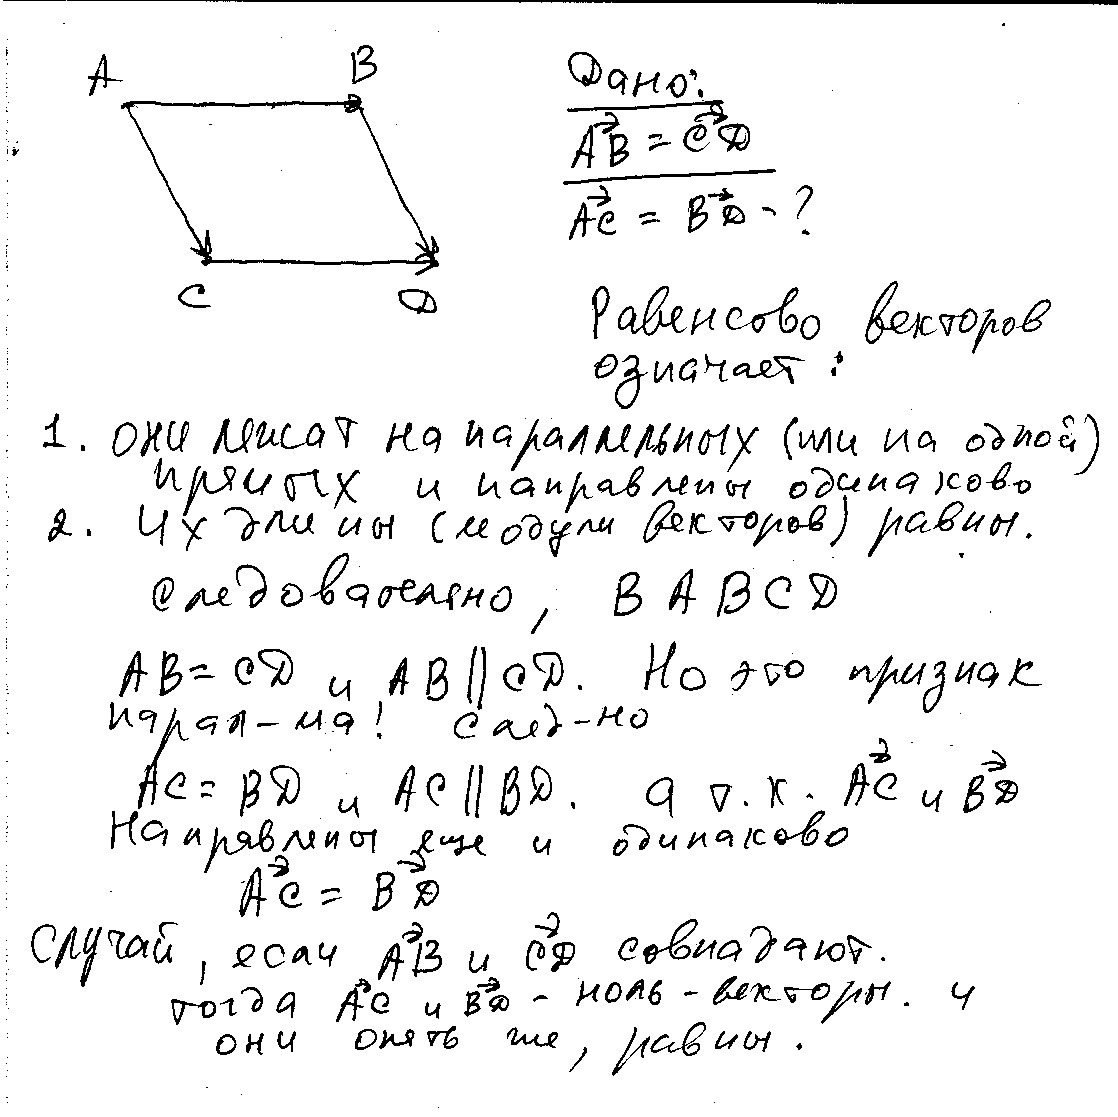 A B
C D
Дано:
AB = CD
AC = BD - ?
Равенсово векторов
означает:
1. они лежат на параллельных (или на одной)
прямых и направлены одинаково
2. Их длины (модули векторов) равны.
Следовательно, В ABCD
AB = CD и AB || CD. Но это признак
парал-ма! След-но
AC = BD и AC || BD. а т.к. AC и BD
направлены еще и одинаково
AC = BD
Случай, если AB и CD совпадают.
тогда AC и BD - ноль-векторы. и
они опять же, равны.